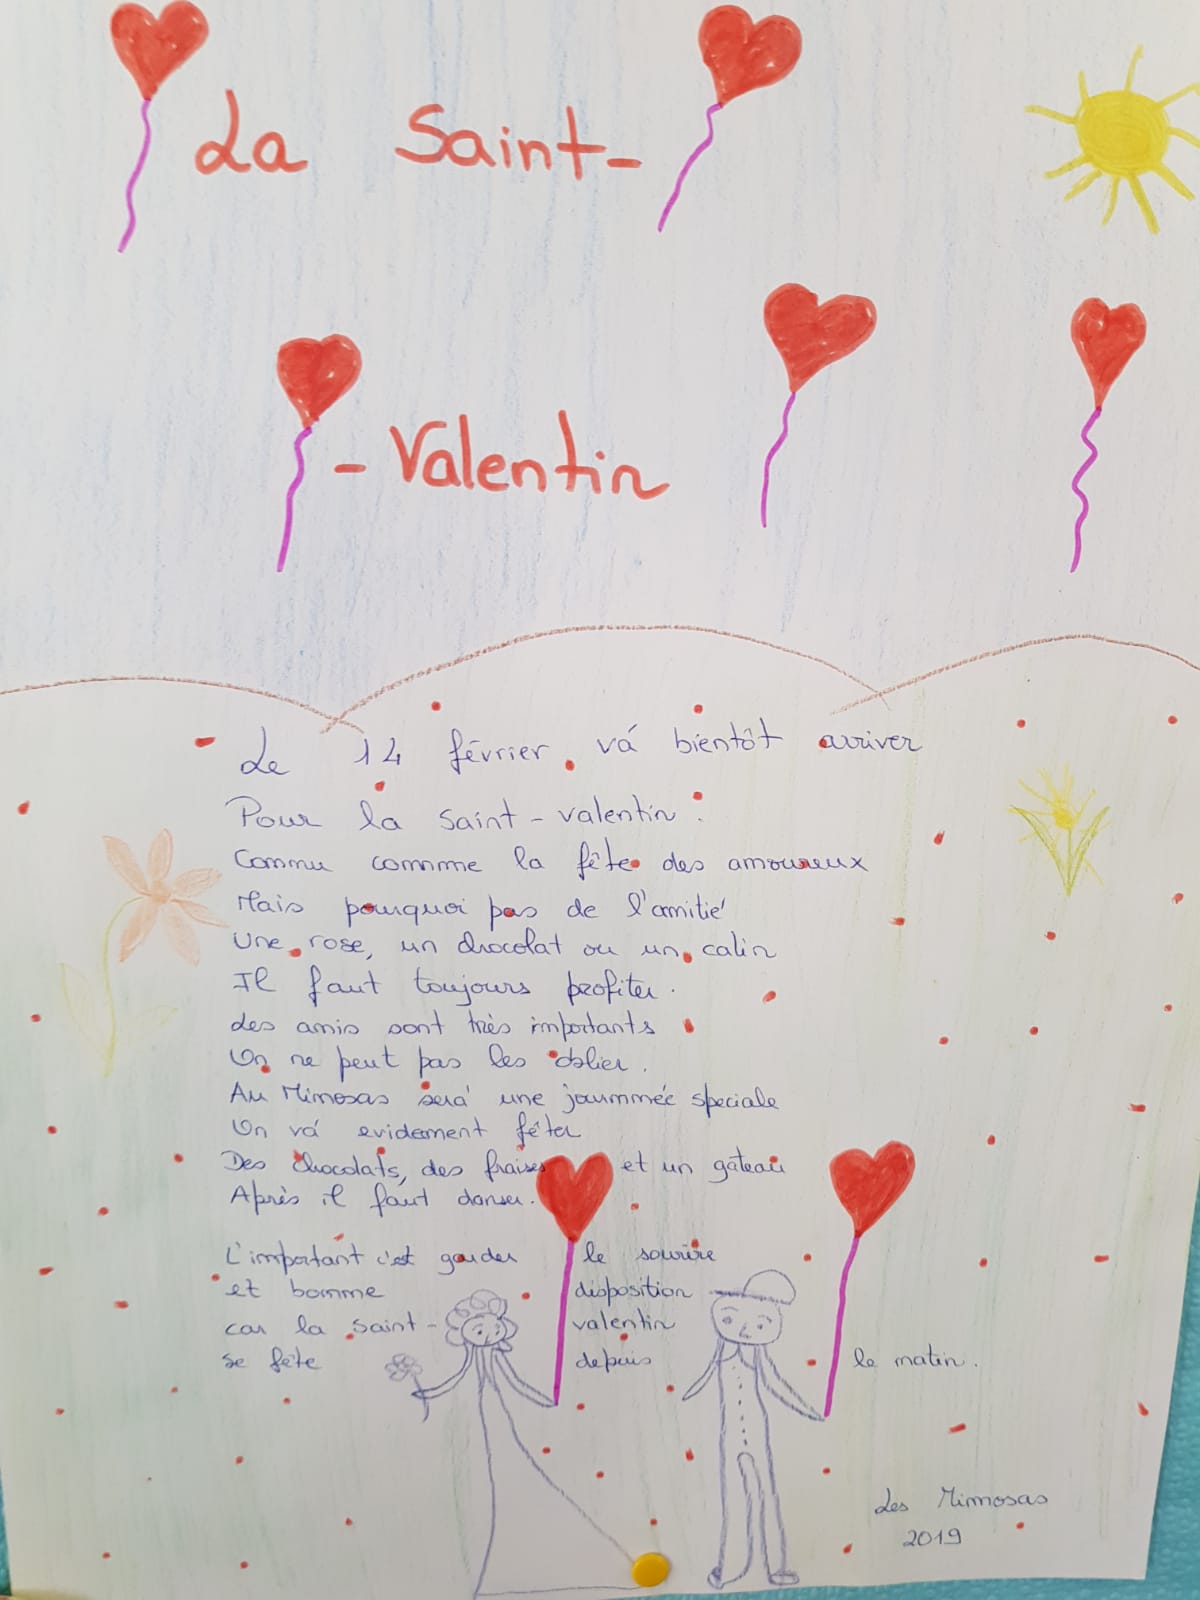 La Saint-
-Valentin
Le 14 février vá bientôt arriver
Pour la saint-valentin.
Connu comme la fête des amoureux
Mais pourquoi pas de l'amitié
Une rose, un chocolat ou un calin
Il faut toujours profiter.
Les amis sont très importants
On ne peut pas les oblier.
Au Mimosas será une journmée speciale
On vá evidement fêter
Des chocolats, des fraises et un gâteau
Après il faut danser.
L'important c'est garder le sourire
et bomme disposition
car la saint-valentin
se fête depuis le matin.
Les Mimosas
2019